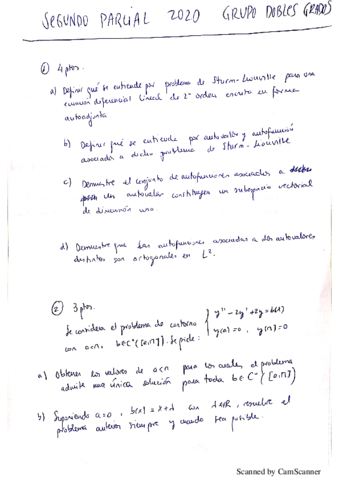 SEGUNDO PARCIAL 2020 GRUPO DOBLES GRADOS
① 4 ptos.
a) Definir qué se entiende por problema de Sturm-Liouville para una
ecuación diferencial lineal de 2º orden escrita en forma
autoadjunta
b) Definir qué se entiende por autovalor y autofunción
asociados a dicho problema de Sturm-Liouville
c) Demuestre el conjunto de autofunciones asociadas a
un autovalor constituyen un subespacio vectorial
de dimensión uno.
d) Demuestre que las autofunciones asociadas a dos autovalores
distintos son ortogonales en L².
② 3 ptos.
Se considera el problema de contorno { y'' - 2y' + 2y = b(x)
y(a) = 0, y(π) = 0
con a<π, b∈C([a,π]). Se pide:
a) Obtener los valores de a<π para los cuales el problema
admite una única solución para toda b∈C([a,π])
b) Suponiendo a=0, b(x)=x+λ con λ∈ℝ, resuelve el
problema anterior siempre y cuando sea posible.
Scanned by CamScanner